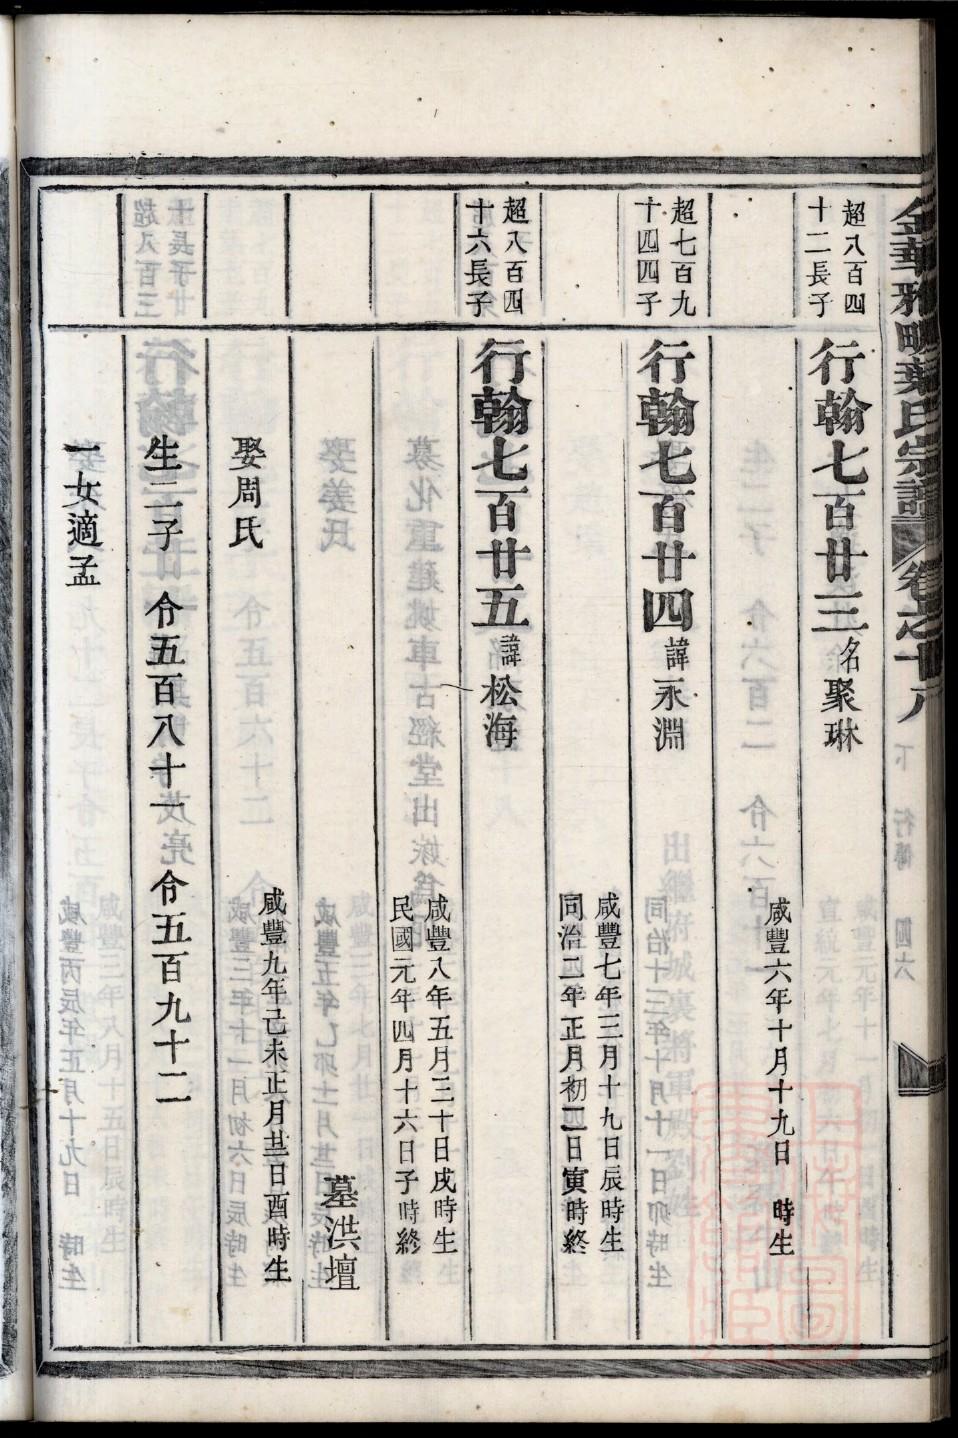 金華雅畈葉氏宗譜 卷之十八 下 行傳 四六
超八百四
十二長子
行翰七百廿三 名聚琳
咸豐六年十月十九日 時生
超七百九
十四四子
行翰七百廿四 諱永淵
咸豐七年三月十九日辰時生
同治二年正月初二日寅時終
超八百四
十六長子
行翰七百廿五 諱松海
咸豐八年五月三十日戌時生
民國元年四月十六日子時終
墓洪壇
娶周氏
咸豐九年己未正月廿日酉時生
生二子 令五百八十一 令五百九十二
一女適孟